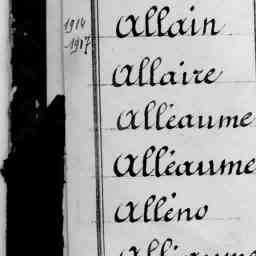 1914 Allain
1917
Allaire
Alléaume
Alléaume
Alléno
Alléaume